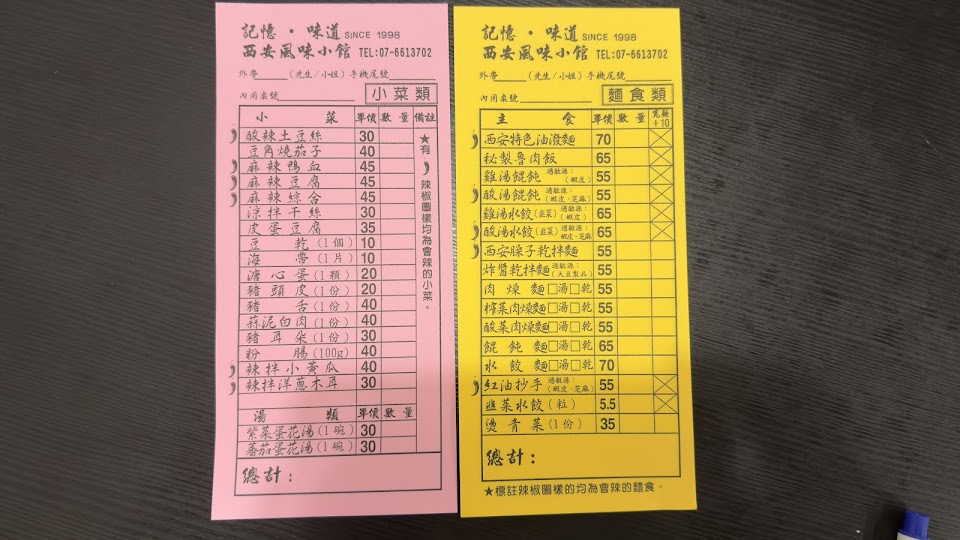 記憶・味道 SINCE 1998
西安風味小館 TEL:07-6613702
外帶______(先生/小姐)手機尾號______
內用桌號______ 小菜類
小菜 單價 數量 備註
酸辣土豆絲 30
豆角燒茄子 40
麻辣鴨血 45
麻辣豆腐 45
麻辣綜合 45
涼拌干絲 30
皮蛋豆腐 35
豆乾(1個) 10
海帶(1片) 10
溏心蛋(1顆) 20
豬頭皮(1份) 20
豬舌(1份) 40
蒜泥白肉(1份) 40
豬耳朵(1份) 30
粉腸(100g) 40
辣拌小黃瓜 40
辣拌洋蔥木耳 30
★有 辣椒圖樣均為會辣的小菜。
湯類 單價 數量
紫菜蛋花湯(1碗) 30
蕃茄蛋花湯(1碗) 30
總計:
記憶・味道 SINCE 1998
西安風味小館 TEL:07-6613702
外帶______(先生/小姐)手機尾號______
內用桌號______ 麵食類
主食 單價 數量 寬麵+10
西安特色油潑麵 70
秘製魯肉飯 65
雞湯餛飩 過敏源:(蝦皮) 55
酸湯餛飩 過敏源:(蝦皮、芝麻) 55
雞湯水餃(韭菜) 過敏源:(蝦皮) 65
酸湯水餃(韭菜) 過敏源:(蝦皮、芝麻) 65
西安臊子乾拌麵 55
炸醬乾拌麵 過敏源:(大豆製品) 55
肉燥麵□湯□乾 55
榨菜肉燥麵□湯□乾 55
酸菜肉燥麵□湯□乾 55
餛飩麵□湯□乾 65
水餃麵□湯□乾 70
紅油抄手 過敏源:(蝦皮、芝麻) 55
韭菜水餃(粒) 5.5
燙青菜(1份) 35
總計:
★標註辣椒圖樣的均為會辣的麵食。